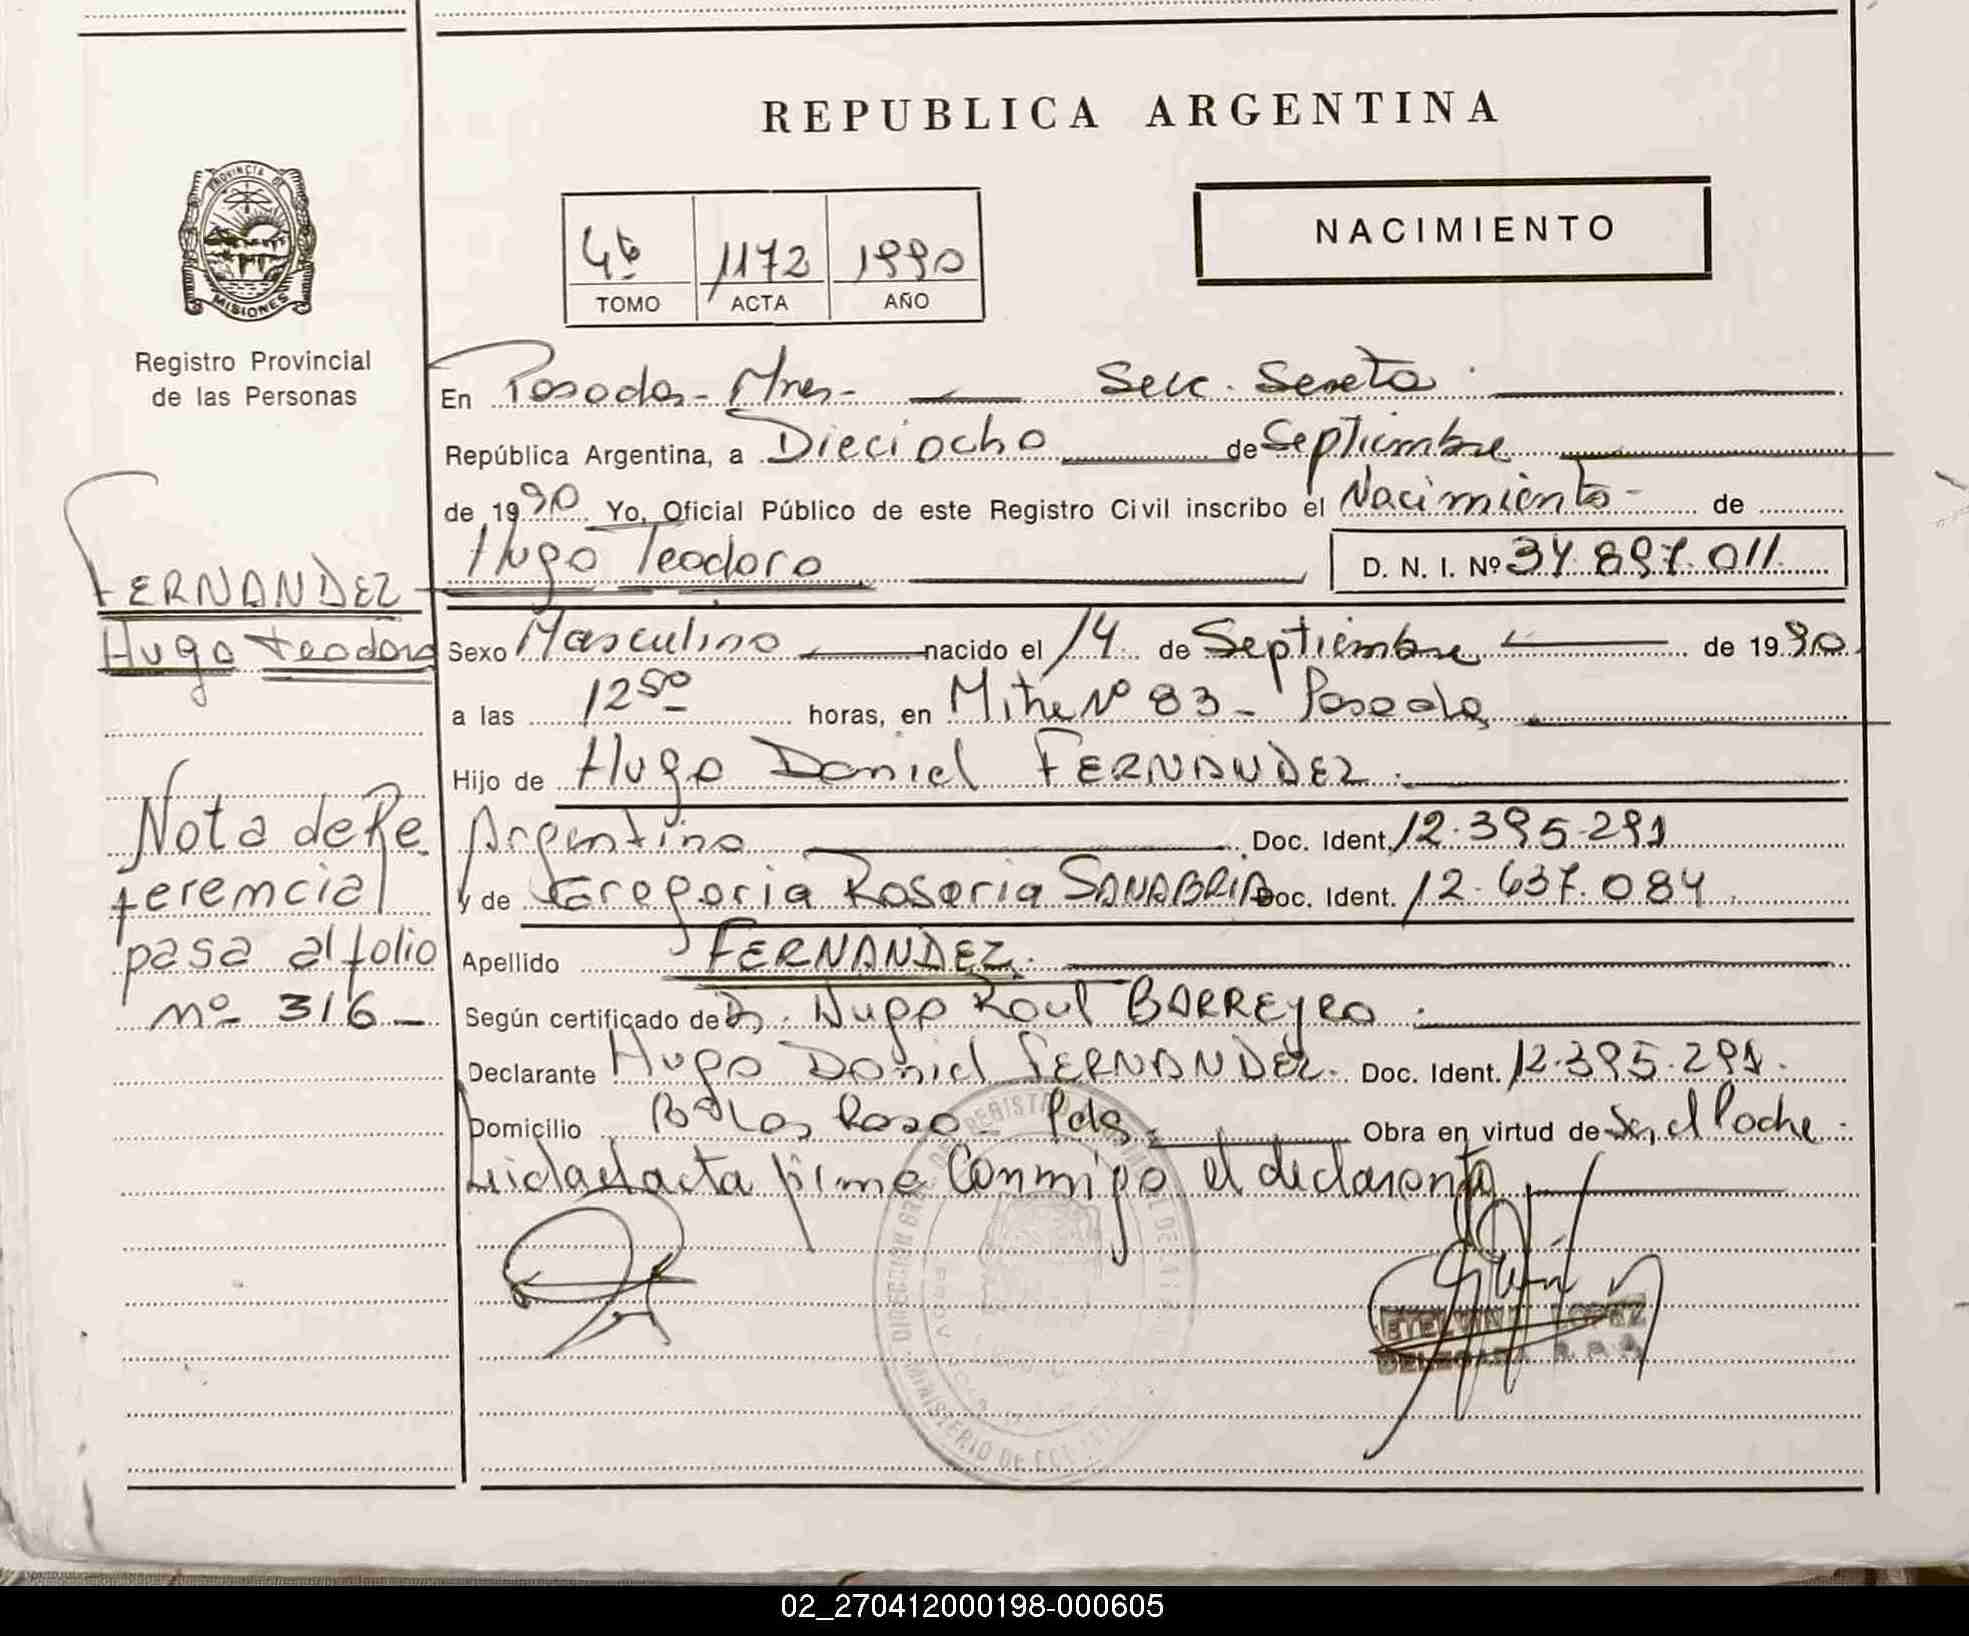 REPUBLICA ARGENTINA
NACIMIENTO
PROVINCIA DE
MISIONES
Registro Provincial
de las Personas
4to 1172 1990
TOMO ACTA AÑO
En Posadas - Mnes - Secc. Sexta
República Argentina, a Dieciocho de Septiembre
de 1990 Yo, Oficial Público de este Registro Civil inscribo el Nacimiento - de
Hugo Teodoro D. N. I. Nº 34.897.011
Sexo Masculino nacido el 14 de Septiembre de 1990
a las 12 50 horas, en Mitre Nº 83 - Posadas
Hijo de Hugo Daniel FERNANDEZ.
Argentino Doc. Ident. 12.395.291
y de Gregoria Rosaria SANABRIA Doc. Ident. 12.637.084
Apellido FERNANDEZ.
Según certificado de Dr. Hugo Raul BARREYRO.
Declarante Hugo Daniel FERNANDEZ. Doc. Ident. 12.395.291.
Domicilio Bº Las Rosas - Pdas. Obra en virtud de Ser el Padre.
Leida el acta firma Conmigo el declarante
ETELVINA LOPEZ
DELEGADA R. P. P.
FERNANDEZ
Hugo Teodoro
Nota de Re
ferencial
pasa al folio
nº 316 -
02_270412000198-000605